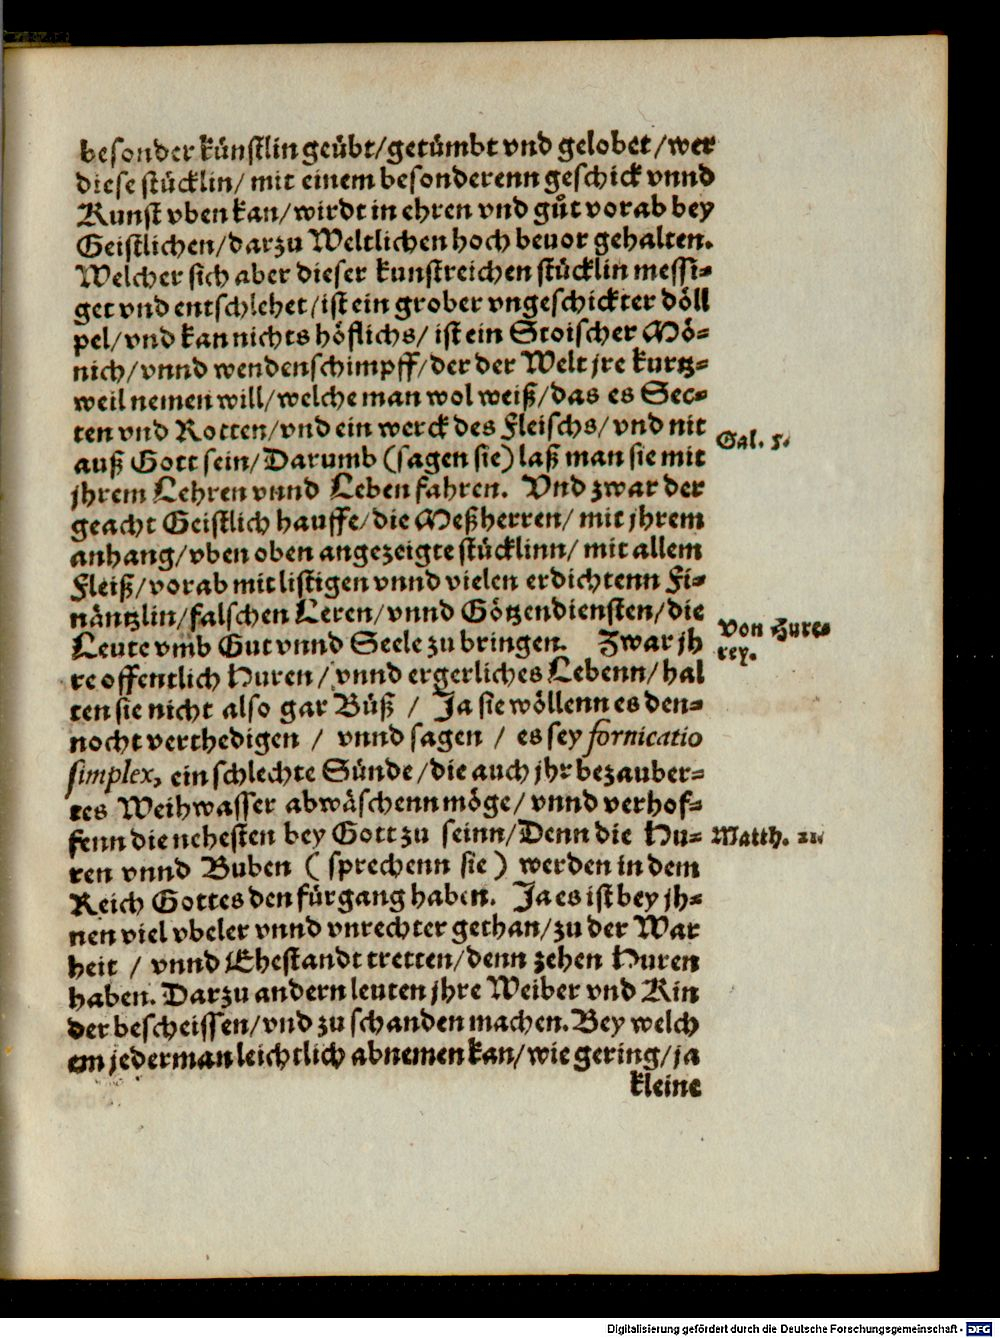 besonder künstlin geübt/getümbt vnd gelobet/wer
diese stücklin/ mit einem besonderenn geschick vnnd
Kunst vben kan/wirdt in ehren vnd gůt vorab bey
Geistlichen/darzu Weltlichen hoch beuor gehalten.
Welcher sich aber dieser kunstreichen stücklin messi-
get vnd entschlehet/ist ein grober vngeschickter döll
pel/vnd kan nichts höflichs/ ist ein Stoischer Mö-
nich/vnnd wendenschimpff/der der Welt jre kurtz-
weil nemen will/welche man wol weiß/das es Sec-
ten vnd Rotten/vnd ein werck des Fleischs/vnd nit
Gal. 5.
auß Gott sein/Darumb (sagen sie) laß man sie mit
jhrem Lehren vnnd Leben fahren. Vnd zwar der
geacht Geistlich hauffe/die Meßherren/ mit jhrem
anhang/vben oben angezeigte stücklinn/ mit allem
Fleiß/vorab mit listigen vnnd vielen erdichtenn Fi-
näntzlin/falschen Leren/vnnd Götzendiensten/die
Leute vmb Gut vnnd Seele zu bringen. Zwar jh
Von Hure-
rey.
re offentlich Huren/vnnd ergerliches Lebenn/hal
ten sie nicht also gar Büß / Ja sie wöllenn es den-
nocht verthedigen / vnnd sagen / es sey fornicatio
simplex, ein schlechte Sünde/die auch jhr bezauber-
tes Weihwasser abwäschenn möge/vnnd verhof-
fenn die nehesten bey Gott zu seinn/Denn die Hu-
Matth. 21.
ren vnnd Buben ( sprechenn sie ) werden in dem
Reich Gottes den fürgang haben. Ja es ist bey jh-
nen viel vbeler vnnd vnrechter gethan/zu der War
heit / vnnd Ehestandt tretten/denn zehen Huren
haben. Darzu andern leuten jhre Weiber vnd Kin
der bescheissen/vnd zu schanden machen. Bey welch
em jederman leichtlich abnemen kan/wie gering/ja
kleine
Digitalisierung gefördert durch die Deutsche Forschungsgemeinschaft - DFG